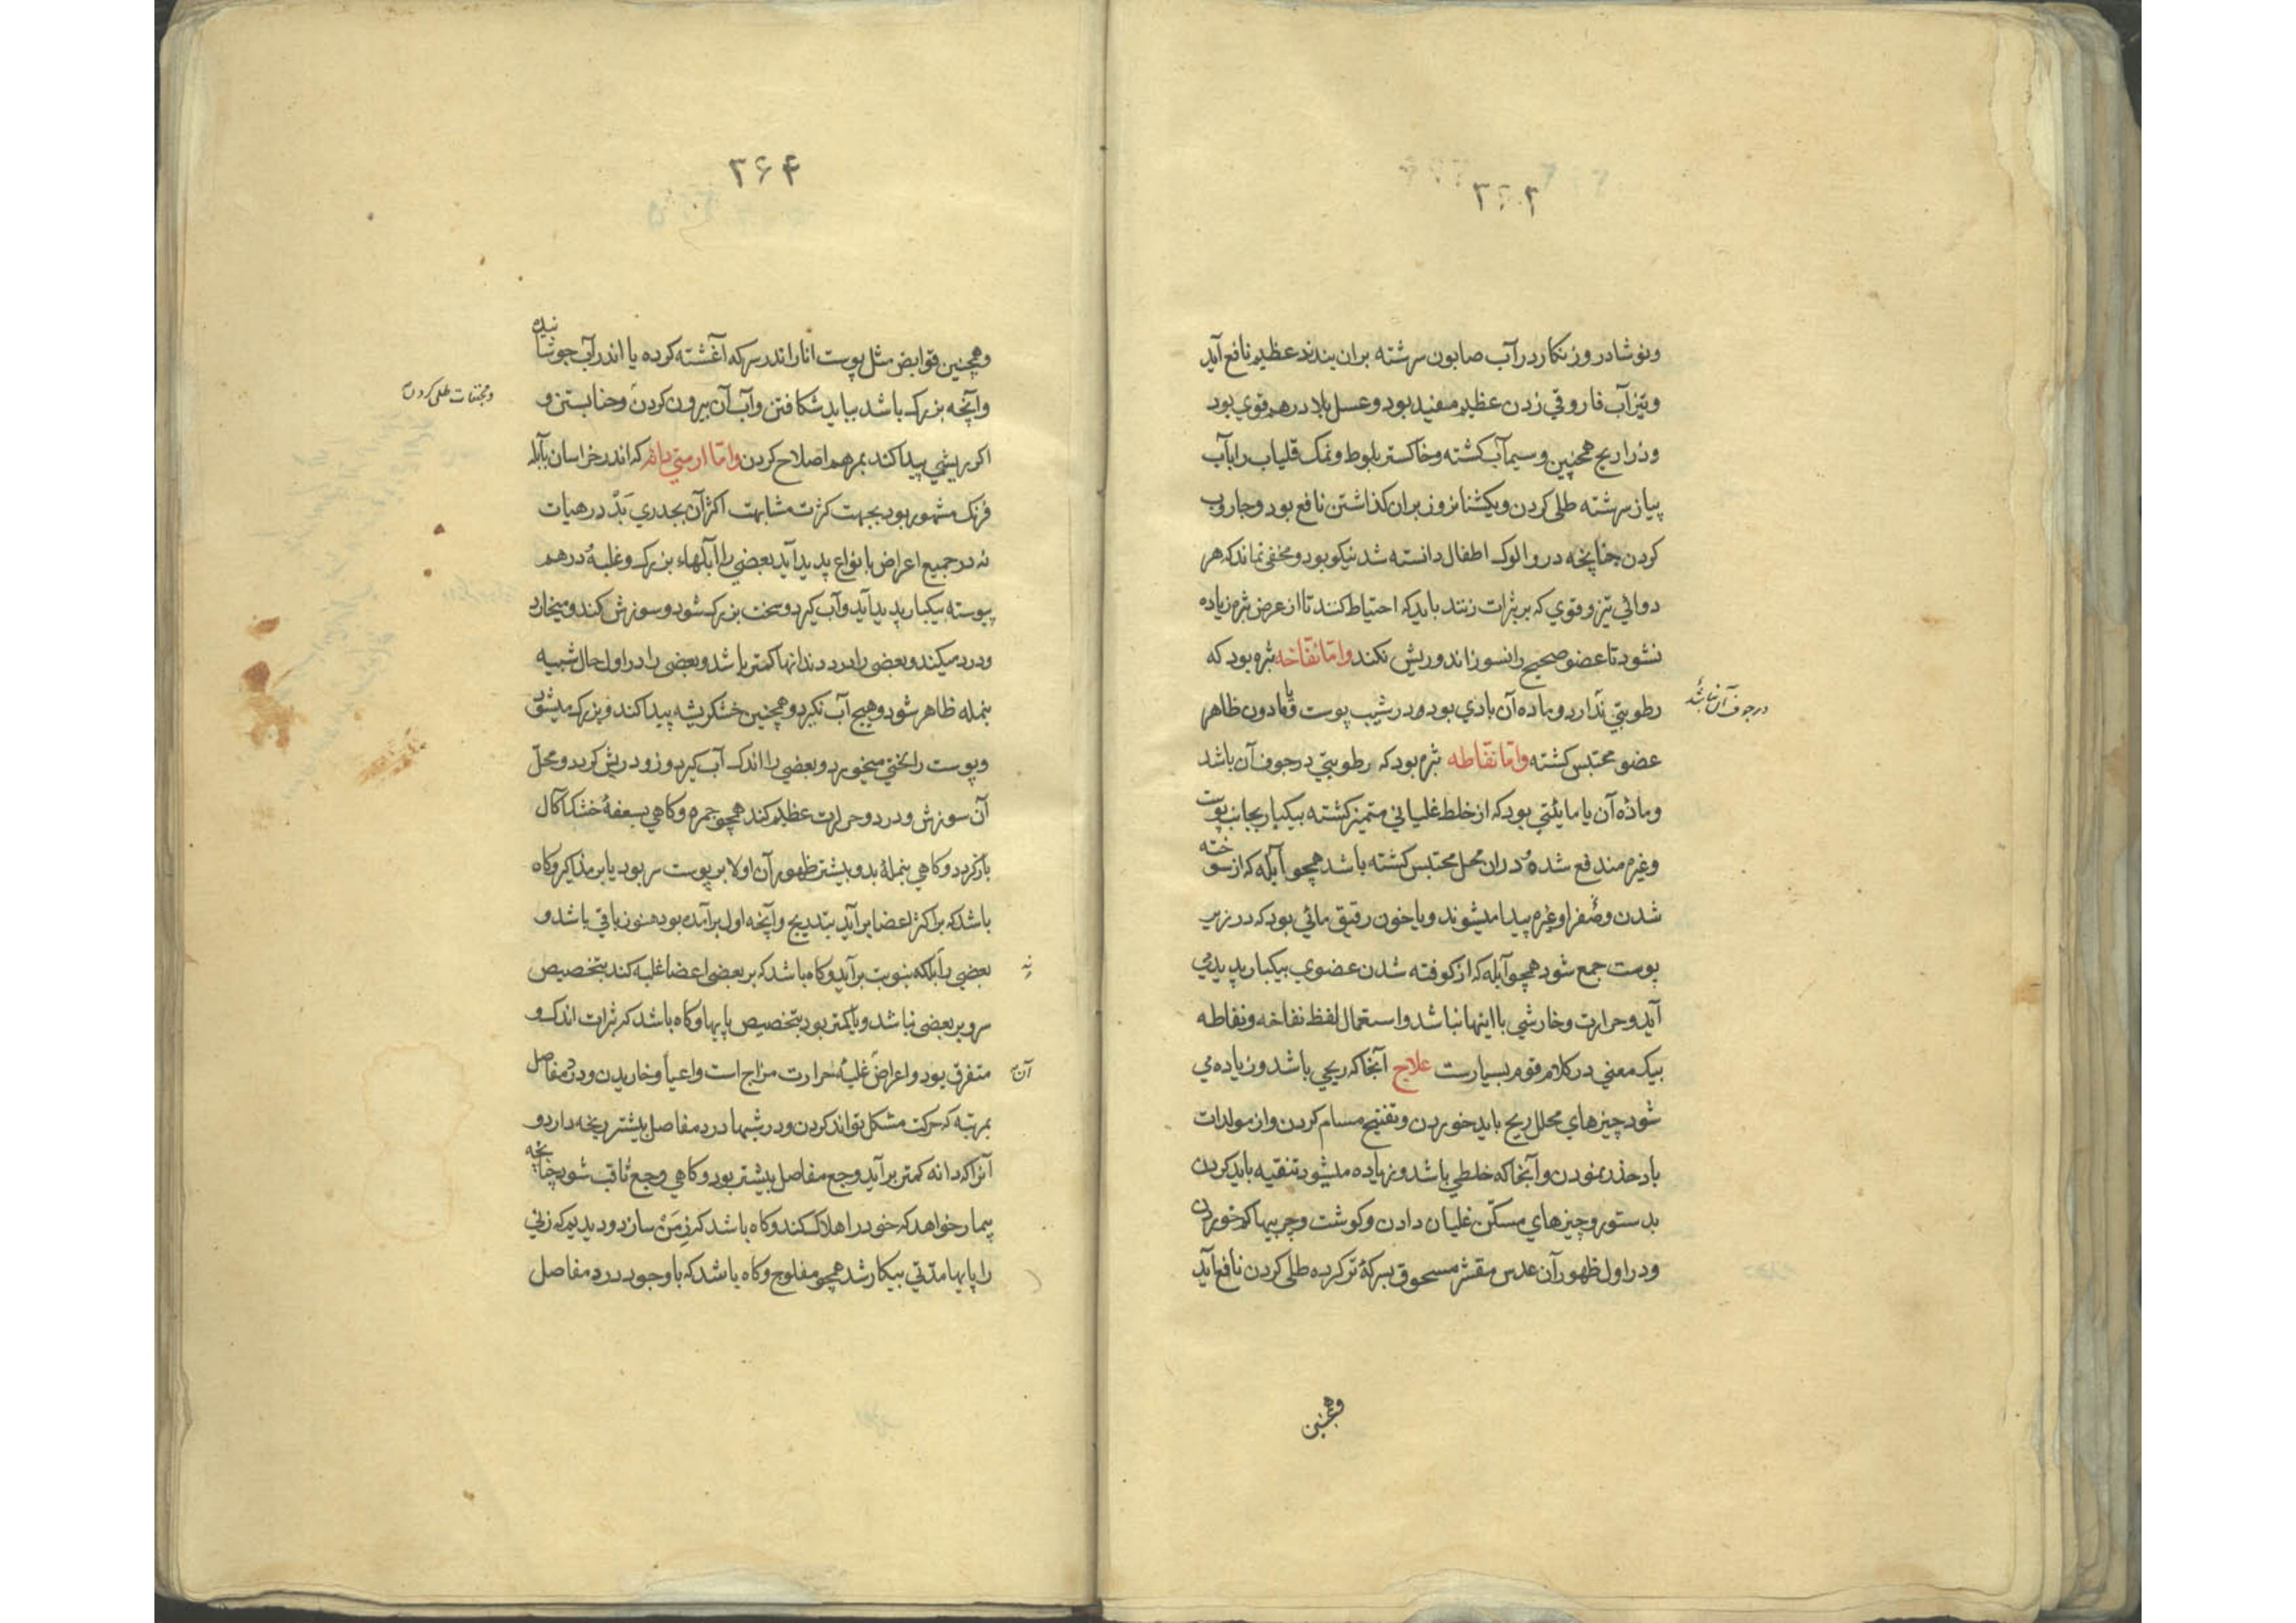 ۳۶۳
ونوشادر و زنكار در آب صابون سرشته بران بندند عظیم نافع آید
وتیز آب فاروقي زدن عظیم مفید بود وعسل بلادر هم قوي بود
وذراریح همچنین وسیماب كشته وخاكستر بلوط ونمك قلیاب را بآب
پیاز سرشته طلی كردن ویكشبانروز بران كذاشتن نافع بود وجاروب
كردن چنانچه در والوك اطفال دانسته شد نیكو بود ومخفی نماند كه هر
دوائي تیز وقوي كه بر بثرات زنند باید كه احتیاط كنند تا از عرض بثره زیاده
نشود تا عضو صحیح را نسوزاند وریش نكند واما نفاخه بثره بود كه
رطوبتي ندارد وماده آن بادي بود در شیب پوست و یا مادون ظاهر
در جوف آن نباشد
عضو محتبس كشته واما نفاطه بثره بود كه رطوبتي در جوف آن باشد
وماده آن یا مائیتي بود كه از خلط غلیاني متمیز كشته بیكبار بجانب پوست
وغیره مندفع شده ودران محل محتبس كشته باشد همچو آبله كه از سوخته
شدن وصفرا وغیره پیدا میشوند ویا خون رقیق مائي بود كه در زیر
پوست جمع شود همچو آبله كه از كوفته شدن عضوي بیكبار پدید مي
آید وحرارت وخارشي با اینها نباشد واستعمال لفظ نفاخه ونفاطه
بیك معني در كلام قوم بسیارست علاج آنجا كه ریحي باشد وزیاده مي
شود چیزهاي محلل ریح باید خوردن وتفتیح مسام كردن واز مولدات
باد حذر نمودن وآنجا كه خلطي باشد وزیاده میشود تنقیه باید كردن
بدستور وچیزهاي مسكن غلیان دادن وكوشت وچربیها كم خوردن
ودر اول ظهور آن عدس مقشر مسحوق بسركه تر كرده طلی كردن نافع آید
وهمچنین
۳۶۴
وهمچنین قوابض مثل پوست انار اندر سركه آغشته كرده یا اندر آب جوشانیده
وآنچه بزرك باشد بباید شكافتن وآب آن بیرون كردن وحنا بستن و
ومجففات طلی كردن
اكر ریشي پیدا كند بمرهم اصلاح كردن واما ارمني دانه كه اندر خراسان بآبله
فرنك مشهور بود بجهت كثرت مشابهت اكثر آن بجدري بد در هیات
نه در جمیع اعراض بانواع پدید آید بعضي را آبلهاء بزرك وغلبه در هم
پیوسته بیكبار پدید آید وآب كیرد وسخت بزرك شود وسوزش كند ومیخارد
ودرد میكند وبعضی را درد دندانها كمتر باشد وبعضی را در اول حال شبیه
بنمله ظاهر شود وهیچ آب نكیرد وهمچنین خشكریشه پیدا كند وبزرك میشود
وپوست را لختي میخورد وبعضي را اندك آب كیرد وزود ریش كردد ومحل
آن سوزش ودرد وحرارت عظیم كند همچو جمره وكاهي بسعفه خشك آكال
باز كردد وكاهي بنمله بد وبیشتر ظهور آن اولا بر پوست سر بود یا بر مذاكیر وكاه
باشد كه بر اكثر اعضا برآید بتدریج وآنچه اول برآمده بود هنوز باقي باشد و
بعضي را بلكه بنوبت برآید وكاه باشد كه بر بعضی اعضا غلبه كند بتخصیص
سر وبر بعضی نباشد ویا كمتر بود بتخصیص پایها وكاه باشد كه بثرات اندك و
متفرق بود واعراض غلبه حرارت مزاج است واعیا وخاریدن ودرد مفاصل
آن
بمرتبه كه حركت مشكل تواند كردن ودر شبها درد مفاصل بیشتر رنجه دارد و
آنرا كه دانه كمتر برآید وجع مفاصل بیشتر بود وكاهي وجع ثاقب شود چنانچه
بیمار خواهد كه خود را هلاك كند وكاه باشد كه زمن سازد ودیدیم كه زني
را پایها مدتي بیكار شد همچو مفلوج وكاه باشد كه با وجود درد مفاصل